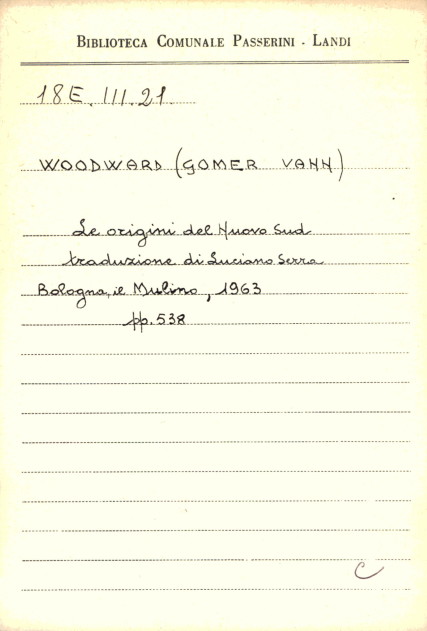 BIBLIOTECA COMUNALE PASSERINI - LANDI
18E.III.21
WOODWARD (GOMER VANN)
Le origini del Nuovo Sud
traduzione di Luciano Serra
Bologna, il Mulino, 1963
pp. 538
C